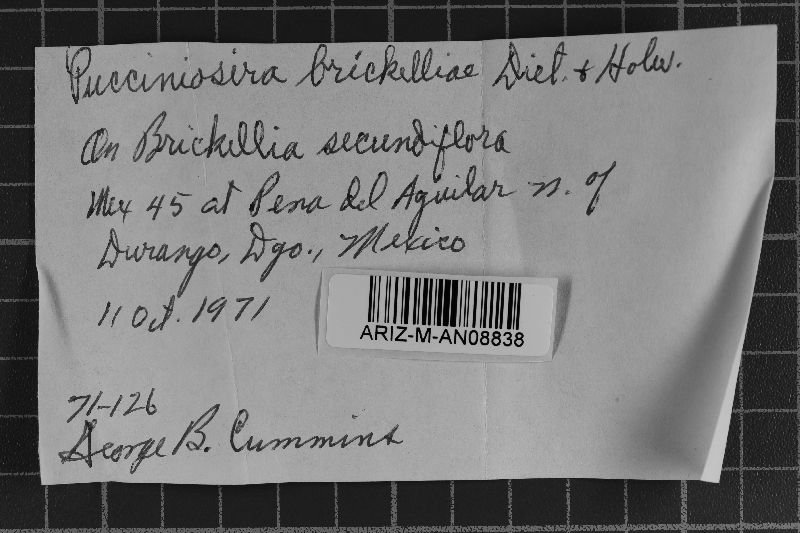 Pucciniosira brickelliae Diet. & Holw.
On Brickellia secundiflora
Mex 45 at Pena del Aguilar n. of
Durango, Dgo., Mexico
11 Oct. 1971
ARIZ-M-AN08838
71-126
George B. Cummins